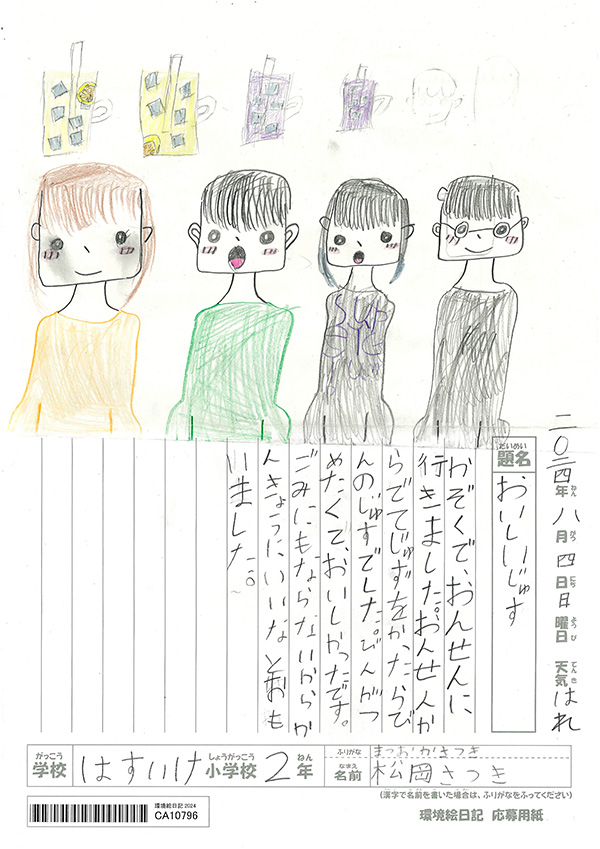 二〇二四年八月四日日曜日 天気はれ
ねん がつ にち ようび てんき
だいめい
題名 おいしいじゅす
かぞくで、おんせんに、
行きました。おんせんか
らでてじゅずをかったらび
んのじゅすでした。びんがつ
めたくて、おいしかったです。
ごみにもならないからか
んきょうにいいなとおも
いました。
がっこう しょうがっこう ねん
学校 はすいけ小学校 2年
ふりがな まつおかさつき
なまえ
名前 松岡さつき
(漢字で名前を書いた場合は、ふりがなをふってください)
環境絵日記 2024
CA10796
環境絵日記 応募用紙